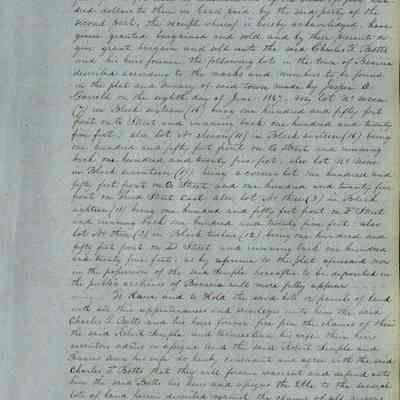 dred dollars to them in hand paid by the said party of the
second part, the receipt whereof is hereby acknowledged have
given granted bargained and sold and by these presents do
give grant bargain and sell unto the said Charles T. Botts
and his heirs forever the following lots in the town of Benicia
described according to the marks and numbers to be found
in the plat and survey of said town made by Jasper O.
Farrell on the eighth day of June 1847. viz: Lot No seven
(7) in Block sixteen (16) being one hundred and fifty feet
front on Street and running back one hundred and twenty
five feet, also lot No eleven (11) in Block sixteen (16) being
one hundred and fifty feet front on to Street and running
back one hundred and twenty five feet, also lot No seven
in Block seventeen (17) being a corner lot one hundred and
fifty feet front on Street and one hundred and twenty five
front on Third Street east, also lot No three (3) in Block
eighteen (18) being one hundred and fifty feet front on Street
and running back one hundred and twenty five feet, also
lot No three (3) in Block twelve (12) being one hundred and
fifty feet front on D Street and running back one hundred
and twenty five feet, as by reference to the plat aforesaid now
in the possession of the said Semple hereafter to be deposited in
the public archives of Benicia will more fully appear
To Have and to Hold the said lots or parcels of land
with all their appurtenances and privileges unto him the said
Charles T. Botts and his heirs forever free from the claims of them
the said Robert Semple and his wife their heirs
executors adm'rs or assigns And the said Robert Semple and
his wife do hereby covenant and agree with the said
Charles T. Botts that they will forever warrant and defend unto
him the said Botts his heirs and assigns the title to the several
lots of land herein described against the claims of all persons